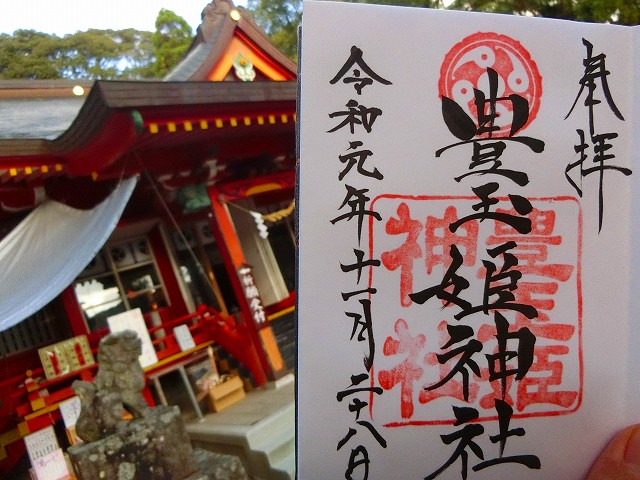 奉拝
豊玉姫神社
令和元年十一月二十八日
豊玉姫
神社